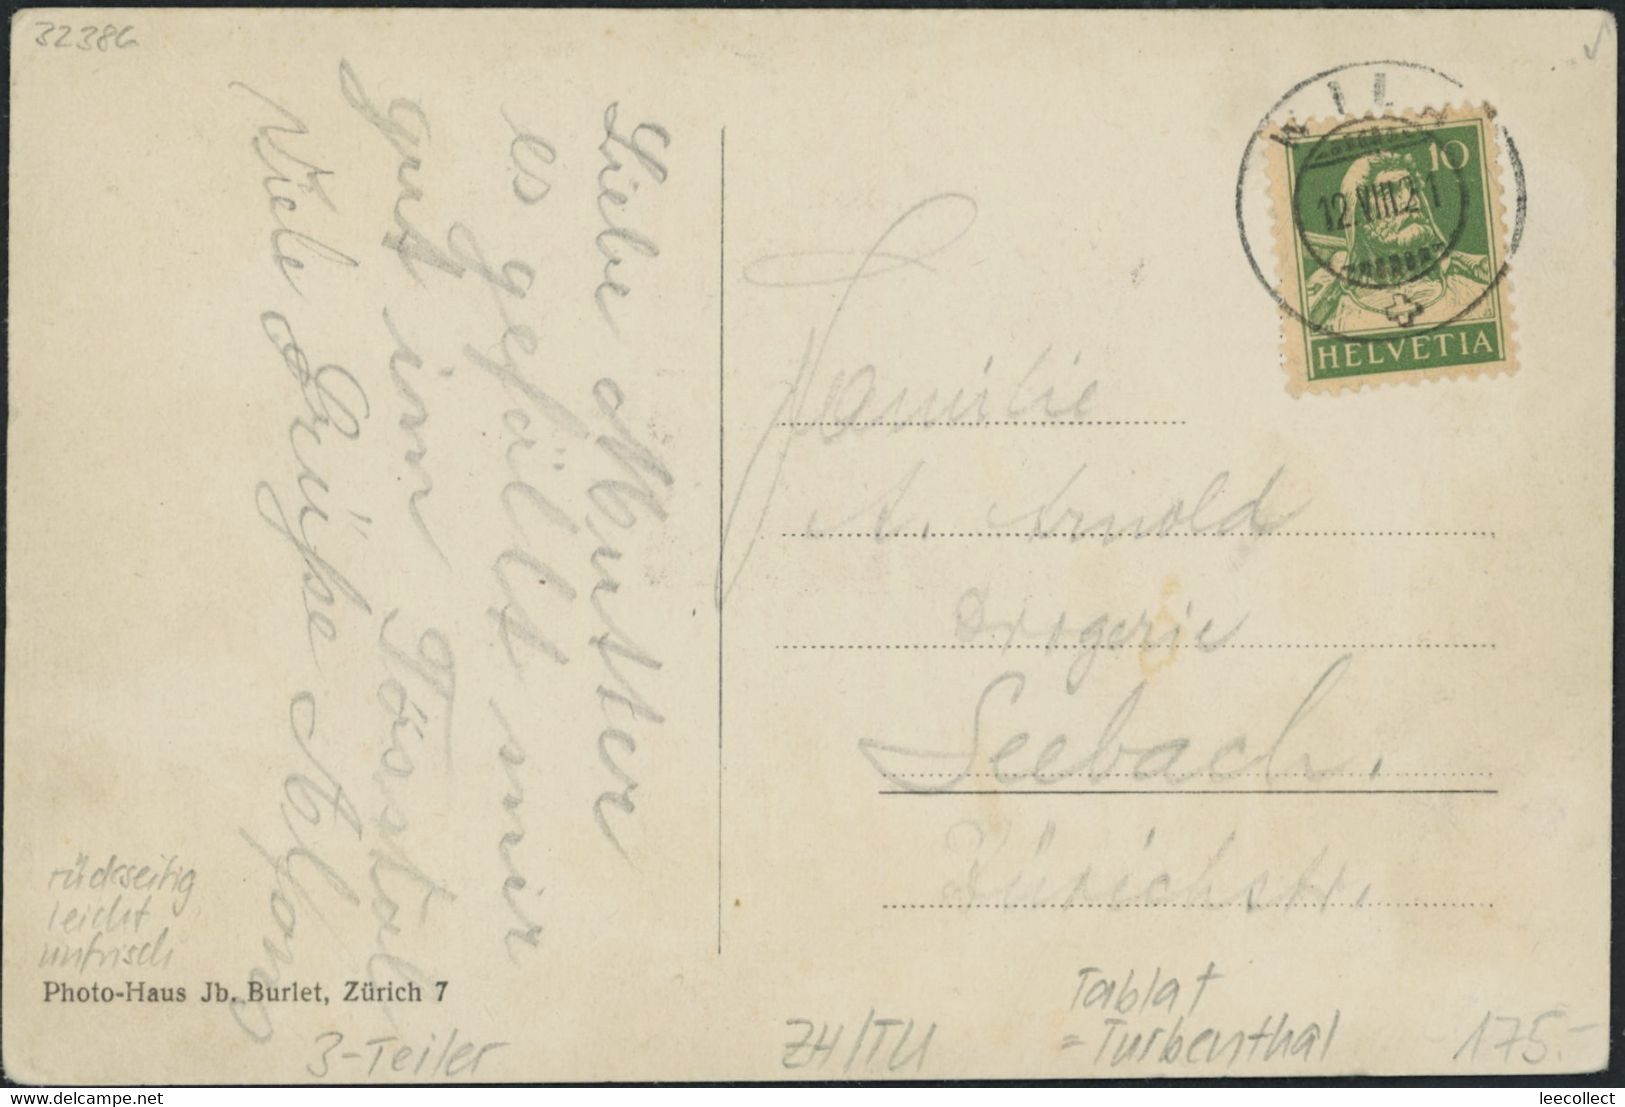 32386
Liebe Mutter
es gefällt mir
gut im Tösstal
Viele Grüsse Alfons
WILA
12.VIII.21
10
HELVETIA
Familie
A. Arnold
Drogerie
Seebach.
Zürichstr.
rückseitig
leicht
unfrisch
Photo-Haus Jb. Burlet, Zürich 7
3-Teiler
ZH/TU
Tablat
= Turbenthal
175.-
www.delcampe.net
leecollect